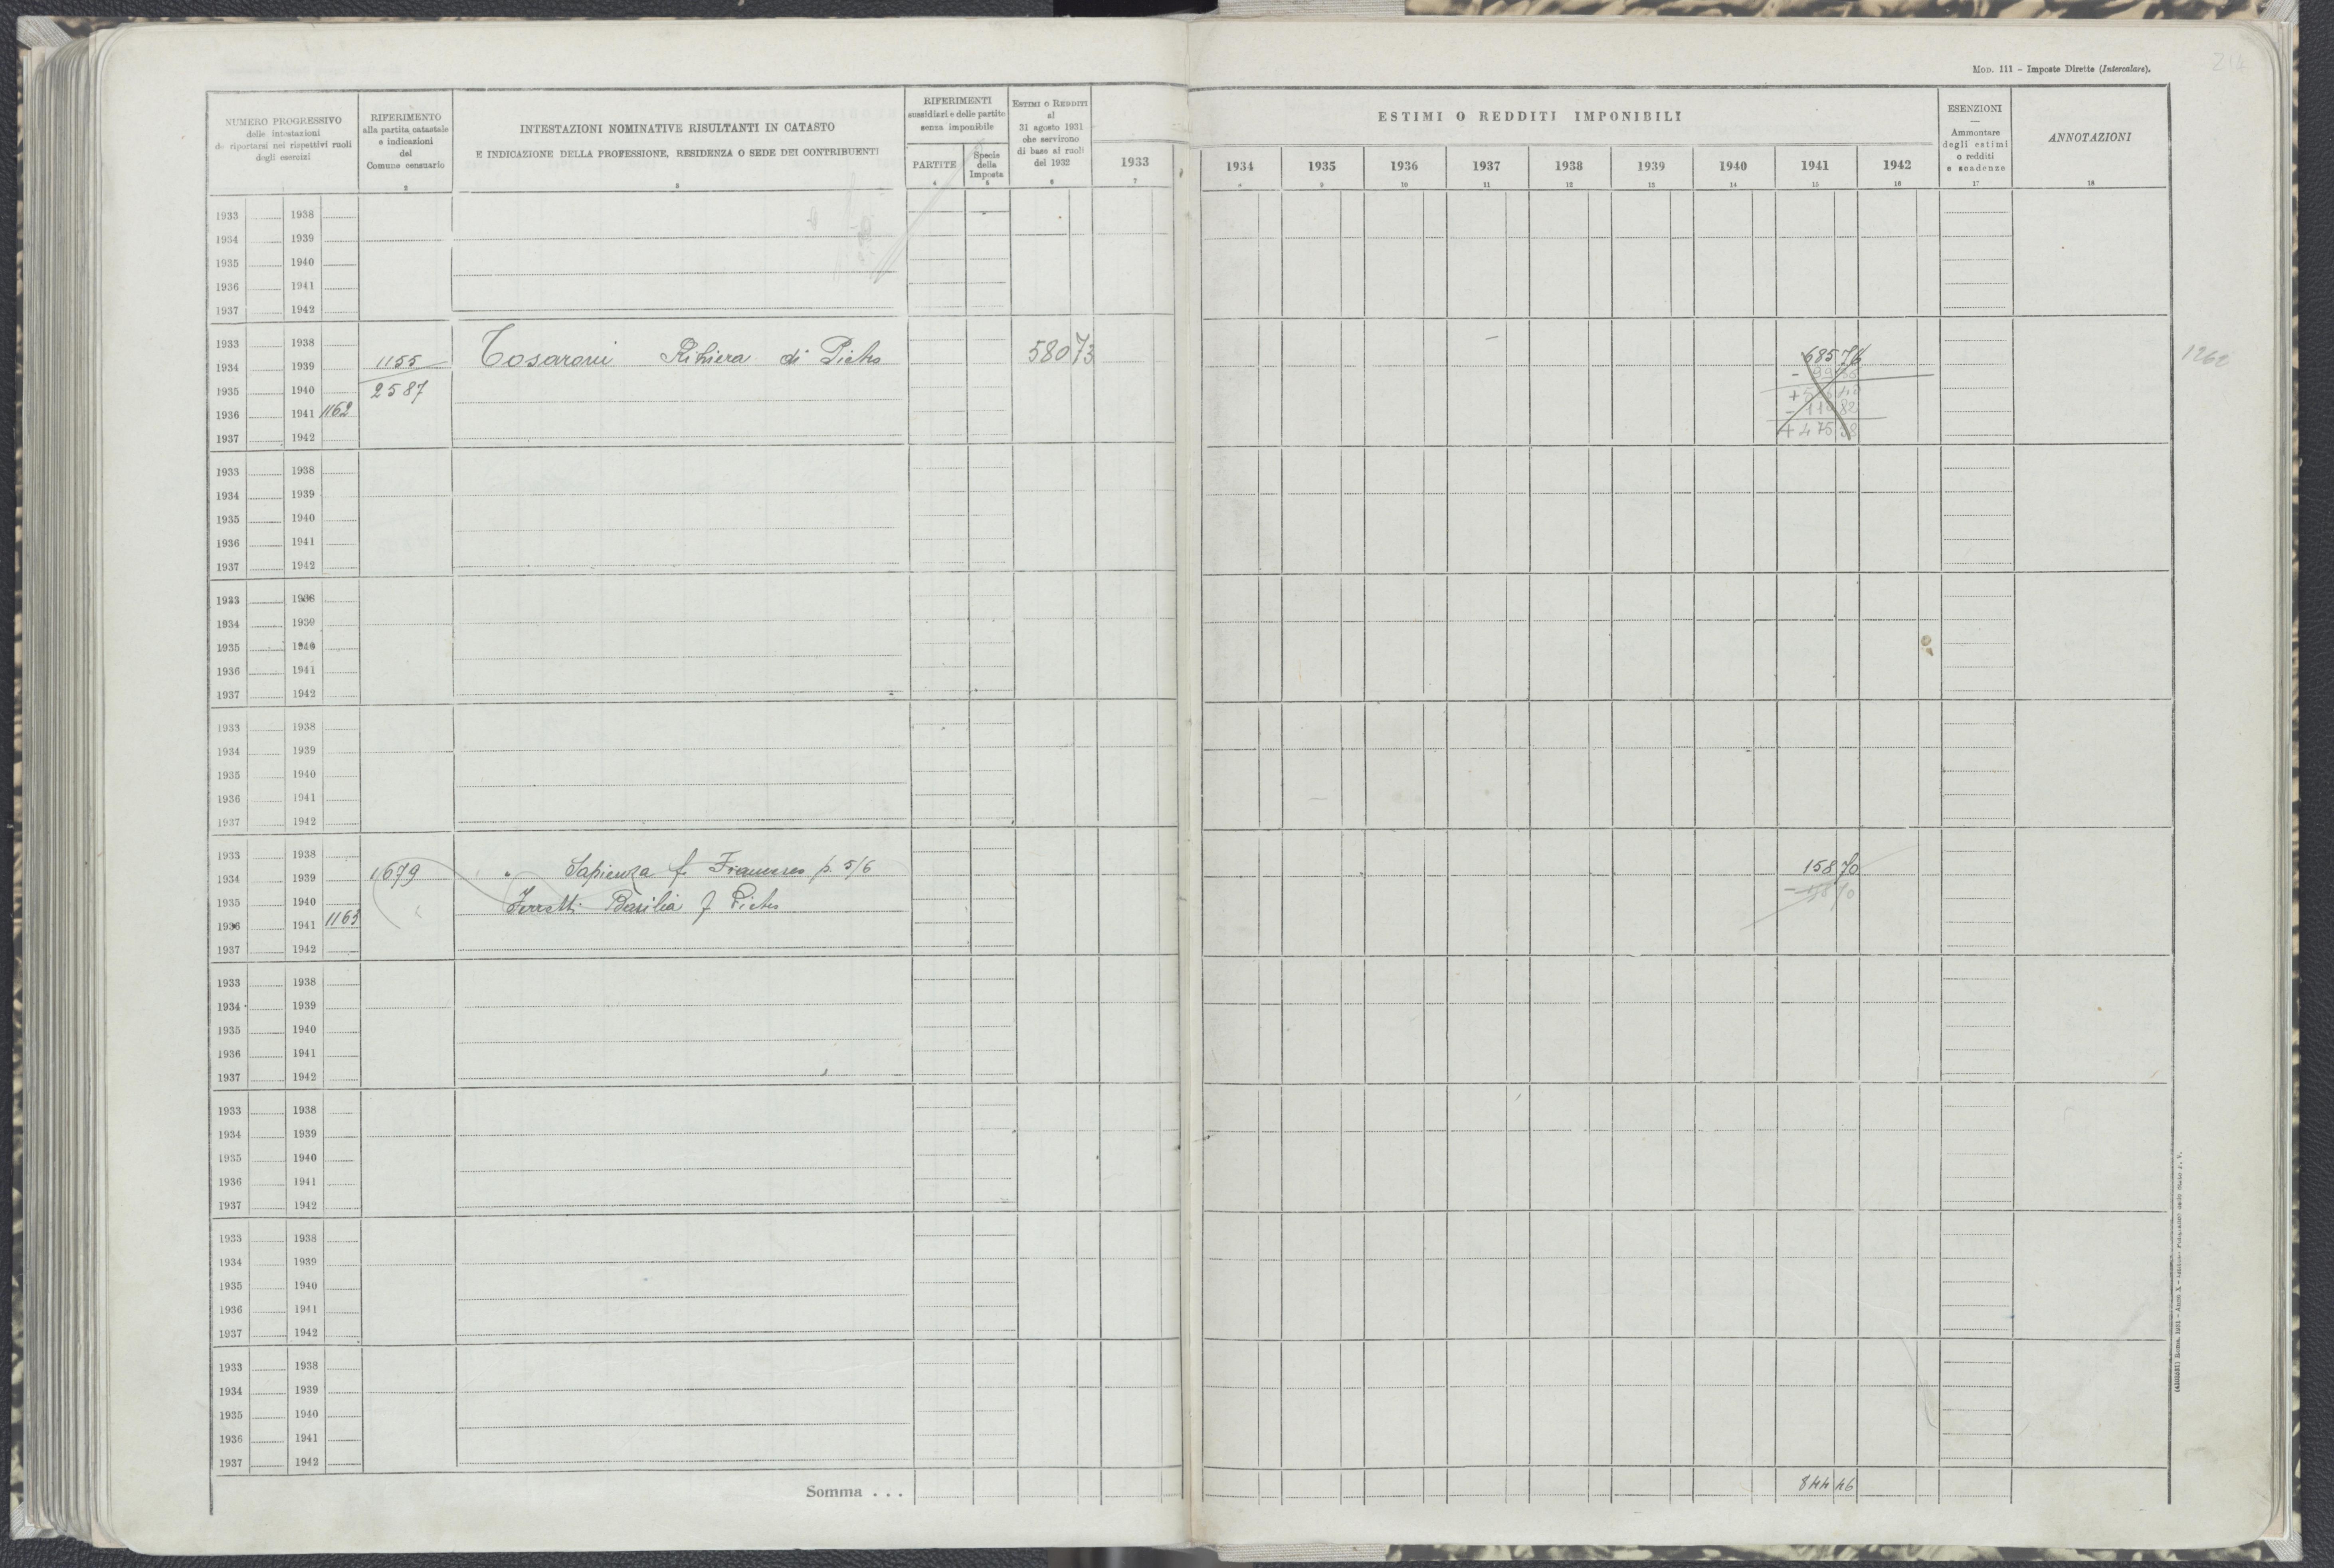 MOD. 111 – Imposte Dirette (Intercalare).
214
NUMERO PROGRESSIVO
delle intestazioni
da riportarsi nei rispettivi ruoli
degli esercizi
1
RIFERIMENTO
alla partita catastale
e indicazioni
del
Comune censuario
2
INTESTAZIONI NOMINATIVE RISULTANTI IN CATASTO
E INDICAZIONE DELLA PROFESSIONE, RESIDENZA O SEDE DEI CONTRIBUENTI
3
RIFERIMENTI
sussidiari e delle partite
senza imponibile
PARTITE
4
Specie
della
Imposta
5
ESTIMI O REDDITI
al
31 agosto 1931
che servirono
di base ai ruoli
del 1932
6
ESTIMI O REDDITI IMPONIBILI
1933 1934 1935 1936 1937 1938 1939 1940 1941 1942
7 8 9 10 11 12 13 14 15 16
ESENZIONI
—
Ammontare
degli estimi
o redditi
e scadenze
17
ANNOTAZIONI
18
1933 1938
1934 1939
1935 1940
1936 1941
1937 1942
1933 1938
1934 1939 1155 Tosaroni di 580 73 685 76 1262
1935 1940 2587
1936 1941 1162
1937 1942 + 475
1933 1938
1934 1939
1935 1940
1936 1941
1937 1942
1933 1938
1934 1939
1935 1940
1936 1941
1937 1942
1933 1938
1934 1939
1935 1940
1936 1941
1937 1942
1933 1938
1934 1939 1679 " Sapienza f. p. 5/6 158 70
1935 1940 Basilia f - 158 70
1936 1941 1163
1937 1942
1933 1938
1934 1939
1935 1940
1936 1941
1937 1942
1933 1938
1934 1939
1935 1940
1936 1941
1937 1942
1933 1938
1934 1939
1935 1940
1936 1941
1937 1942
1933 1938
1934 1939
1935 1940
1936 1941
1937 1942
Somma . . . 844 46